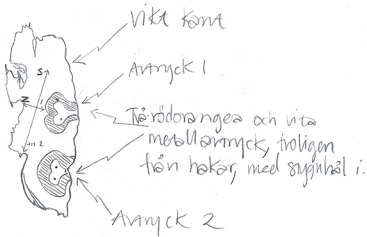 Vikt kant
Avtryck 1
Två rödorangea och vita
metallavtryck, troligen
från hakar, med synhål i.
Avtryck 2
S
Z